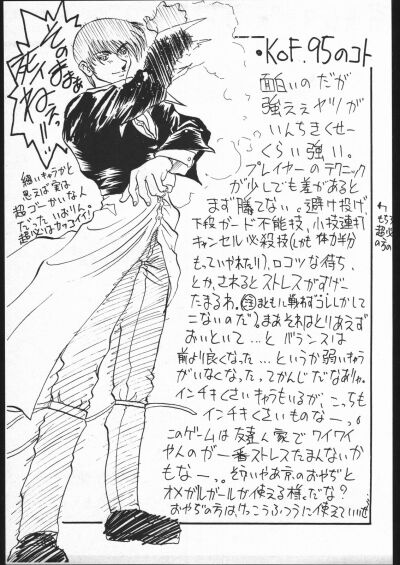 ・KOF.'95のコト
面白いのだが
強ええヤツが
いんちきくせー
くらい強い。
プレイヤーのテクニック
が少しでも差があると
まず勝てない。避け投げ、
下段ガード不能技、小技連打
キャンセル必殺技(しかも体力半分
もっていやがったり)、ロコツな待ち、
とか、されるとストレスがすげー
たまるわ。(注まともに戦わずコレしかして
こないのだ)、まあそれはとりあえず
おいといて…と バランスは
前より良くなった…というか弱いキャラ
がいなくなったってかんじだなありゃ。
インチキくさいキャラもいるが、こっちも
インチキくさいものなー。
このゲームは友達ん家でワイワイ
やんのが一番ストレスたまんないか
もなー。。そういやあ京のおやぢと
オメガルガールか使える様だな?
おやぢの方はけっこうふつうに使えていいぜ
そのまままま
死イねえっ!!
細いキャラかと
思えば実は
超ゴーかいなん
だった いおりん。
超必はカッコイイ!